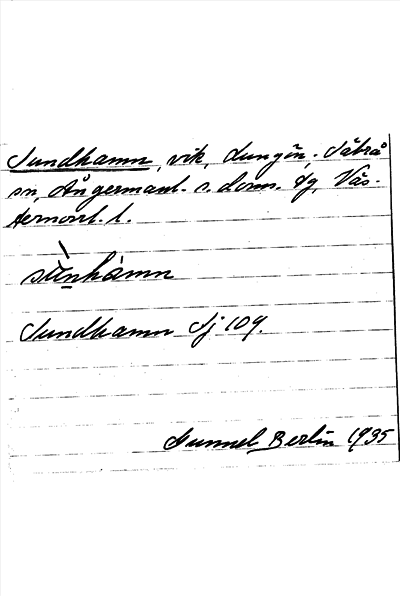 Sundhamn, vik, Lungön. Säbrå
sn, Ångermanl. s. doms. dg, Väs-
ternorrl. l.
sùnhámn
Sundhamn Sj 109.
Gunnel Berlin 1935